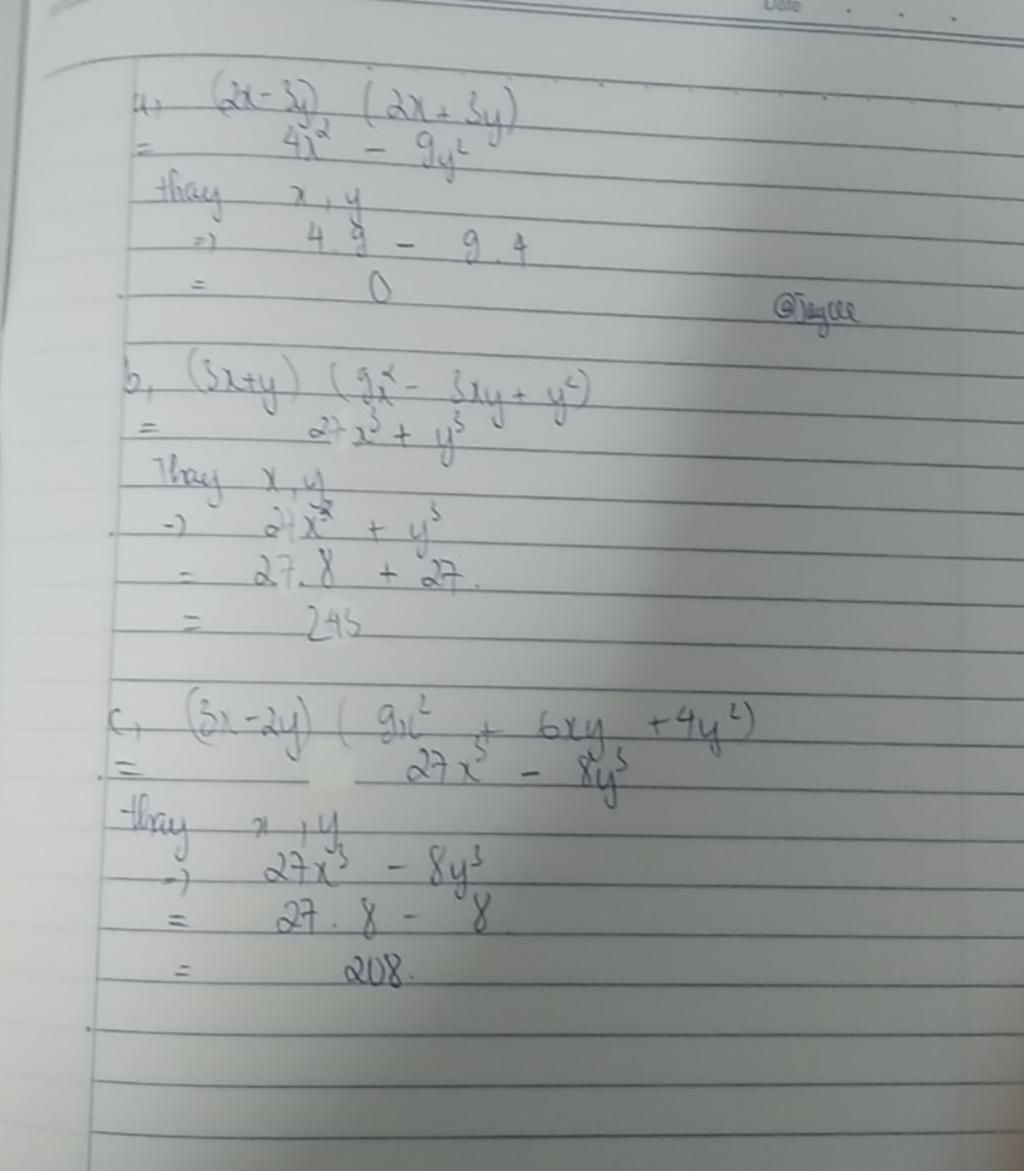 Date . . .
a, (2x - 3y) (2x + 3y)
= 4x² - 9y²
thay x, y
=) 4.9 - 9.4
= 0
@Jaycee
b, (3x+y) (9x² - 3xy + y²)
= 27x³ + y³
Thay x, y
=) 27x³ + y³
= 27.8 + 27.
= 243
c, (3x-2y) (9x² + 6xy + 4y²)
= 27x³ - 8y³
thay x, y
=) 27x³ - 8y³
= 27.8 - 8
= 208.